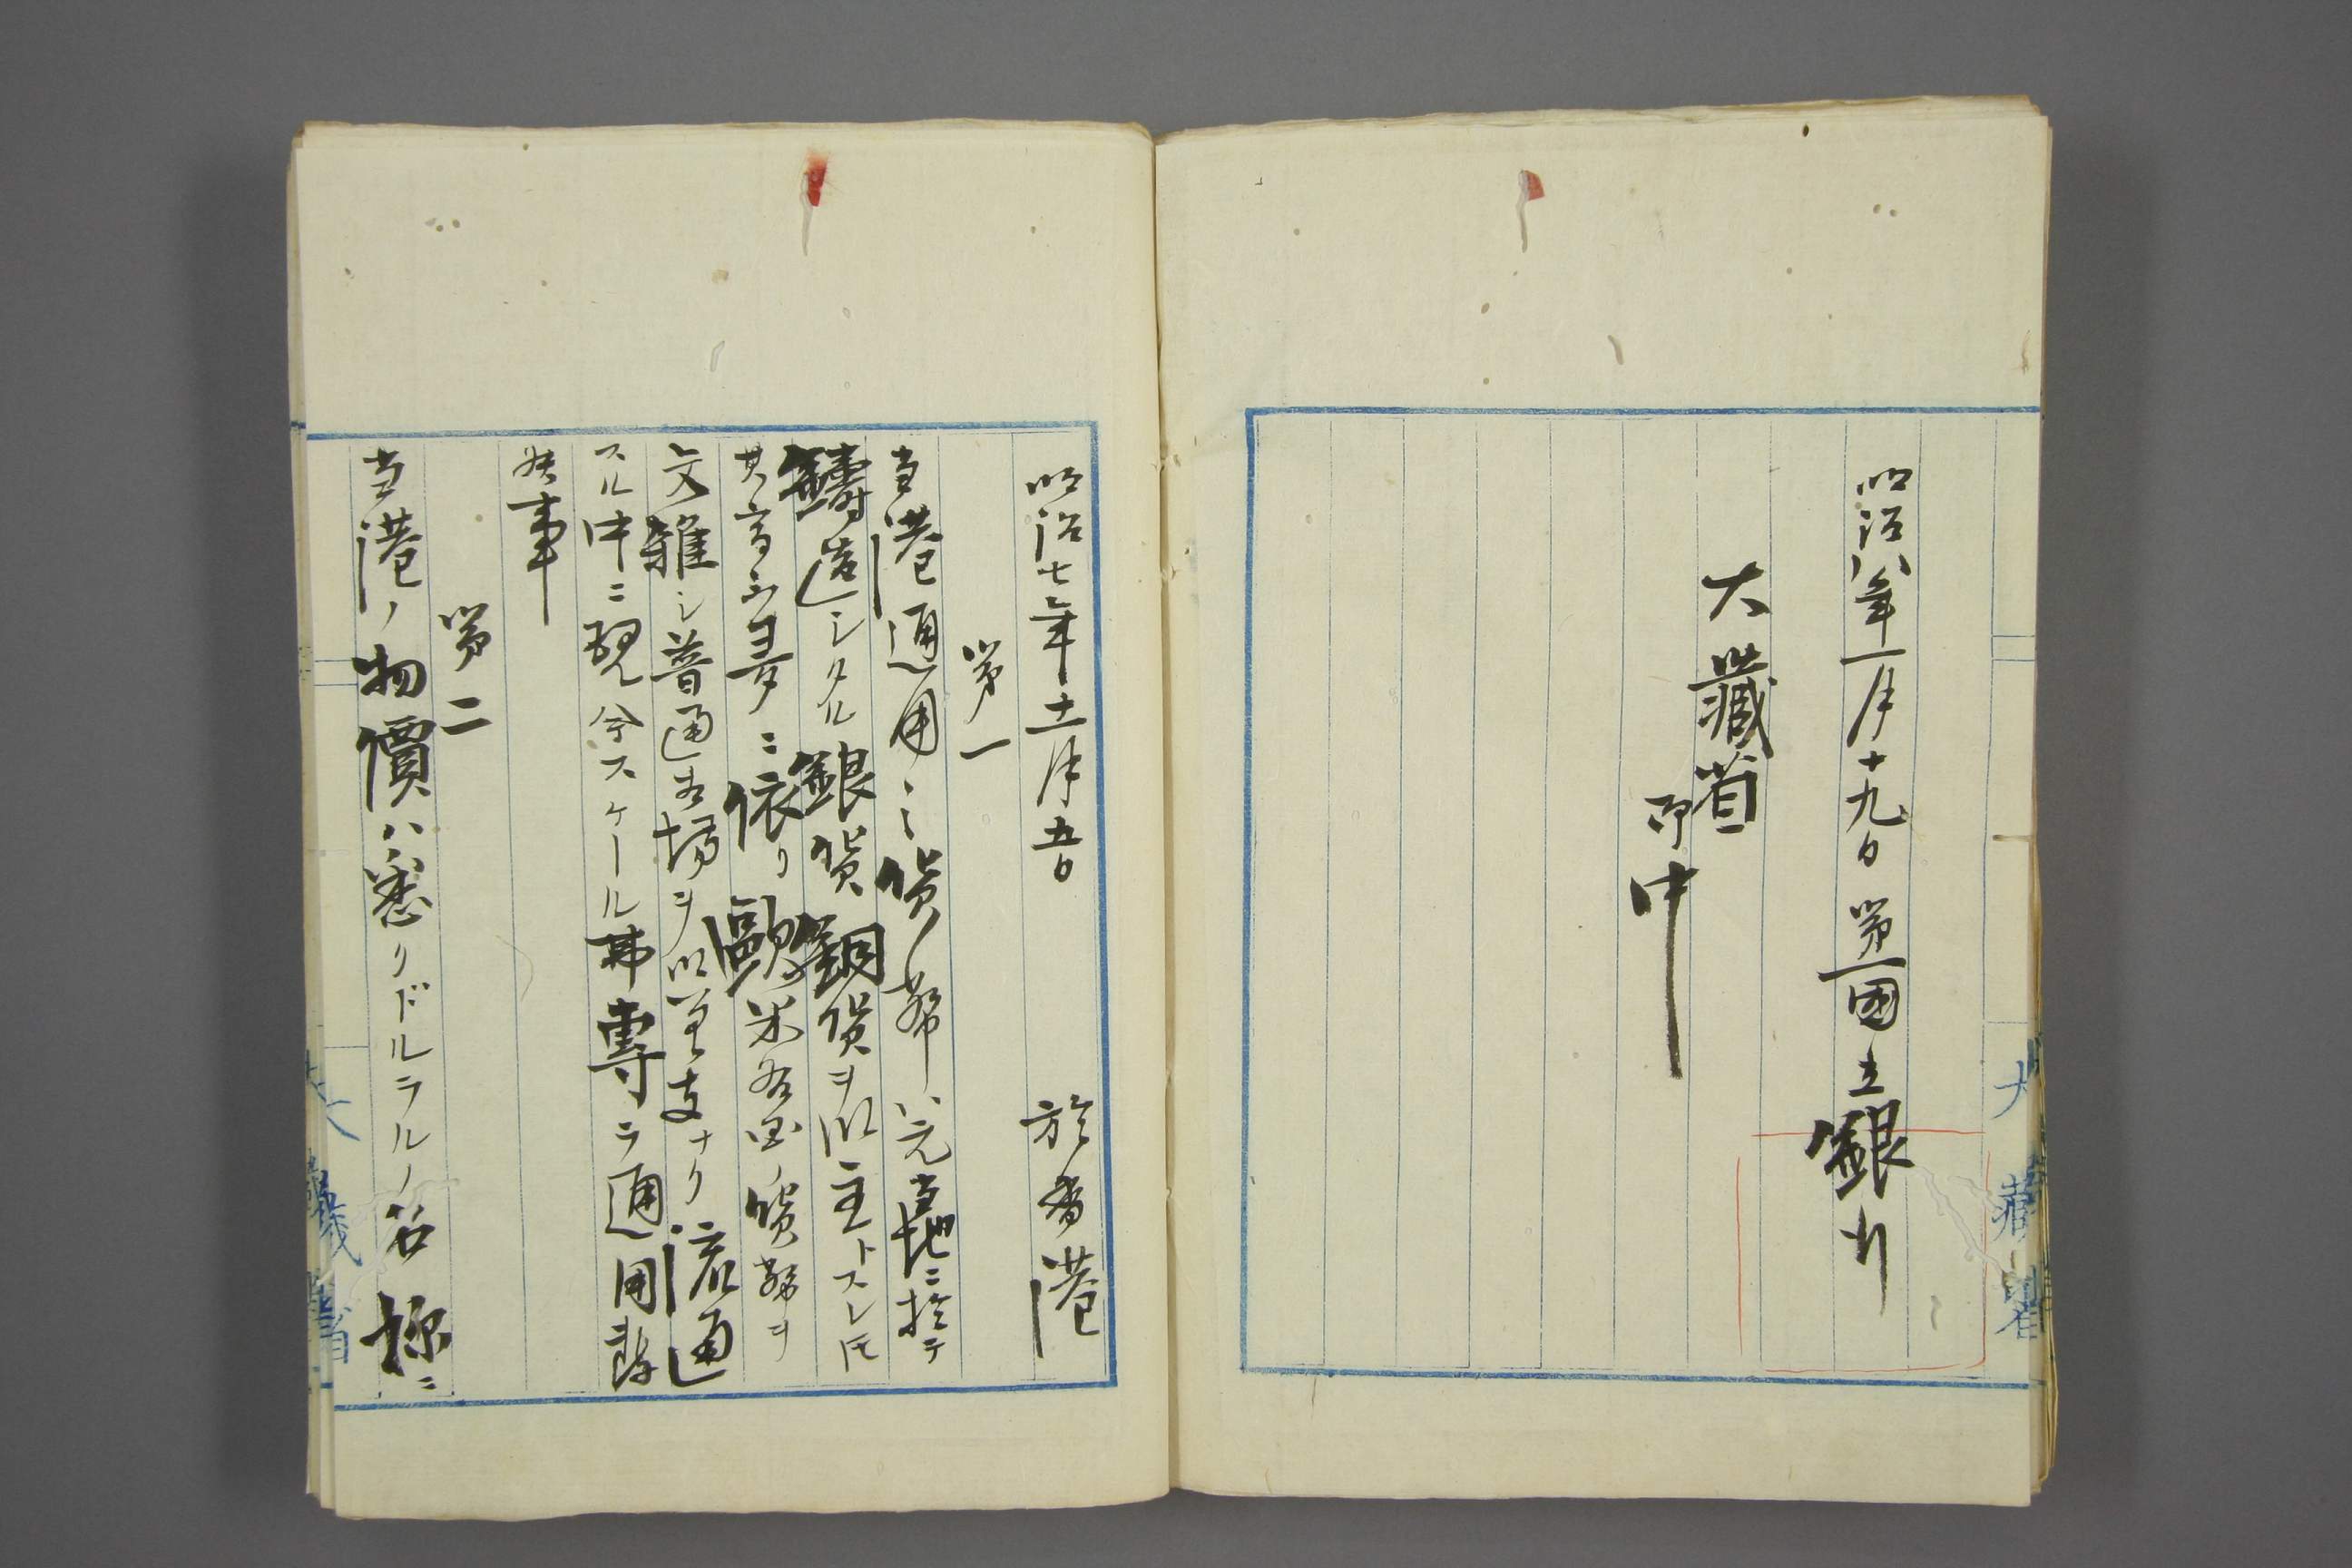 明治八年一月十九日 第一國立銀行
大藏省
御中
大藏省
明治七年十二月五日 於香港
第一
当港通用之貨幣ハ元当地ニ於テ
鋳造シタル銀貨銅貨ヲ以主トスレ𪜈
其高寡ニ依リ歐米各国ノ貨幣ヲ
交雑シ普通相場ヲ以テ支ナリ流通
スル中ニ現今スケール弗専ラ通用
候事
第二
当港ノ物價ハ悉クドルラルノ名称ニ
大藏省